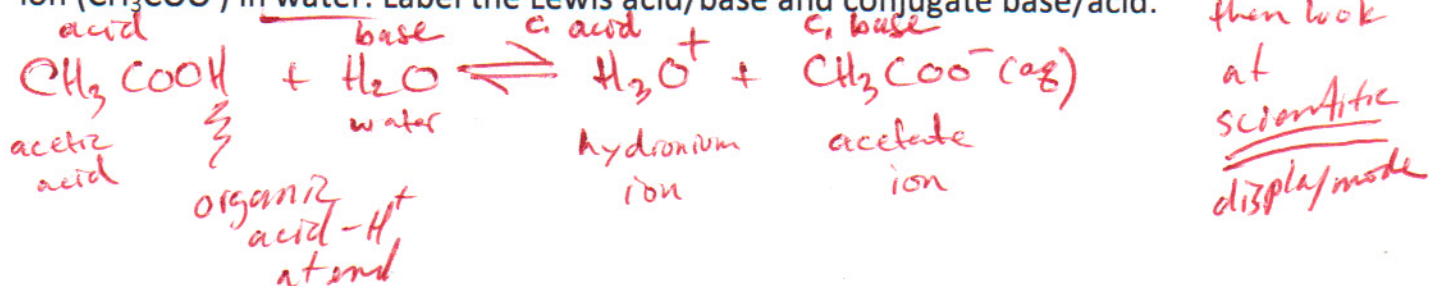 ion (CH₃COO⁻) in water. Label the Lewis acid/base and conjugate base/acid.
acid base c. acid c. base
CH₃COOH + H₂O ⇌ H₃O⁺ + CH₃COO⁻(aq)
acetic acid
water
hydronium ion
acetate ion
organic
acid - H⁺
at end
then look
at
scientific
display/mode